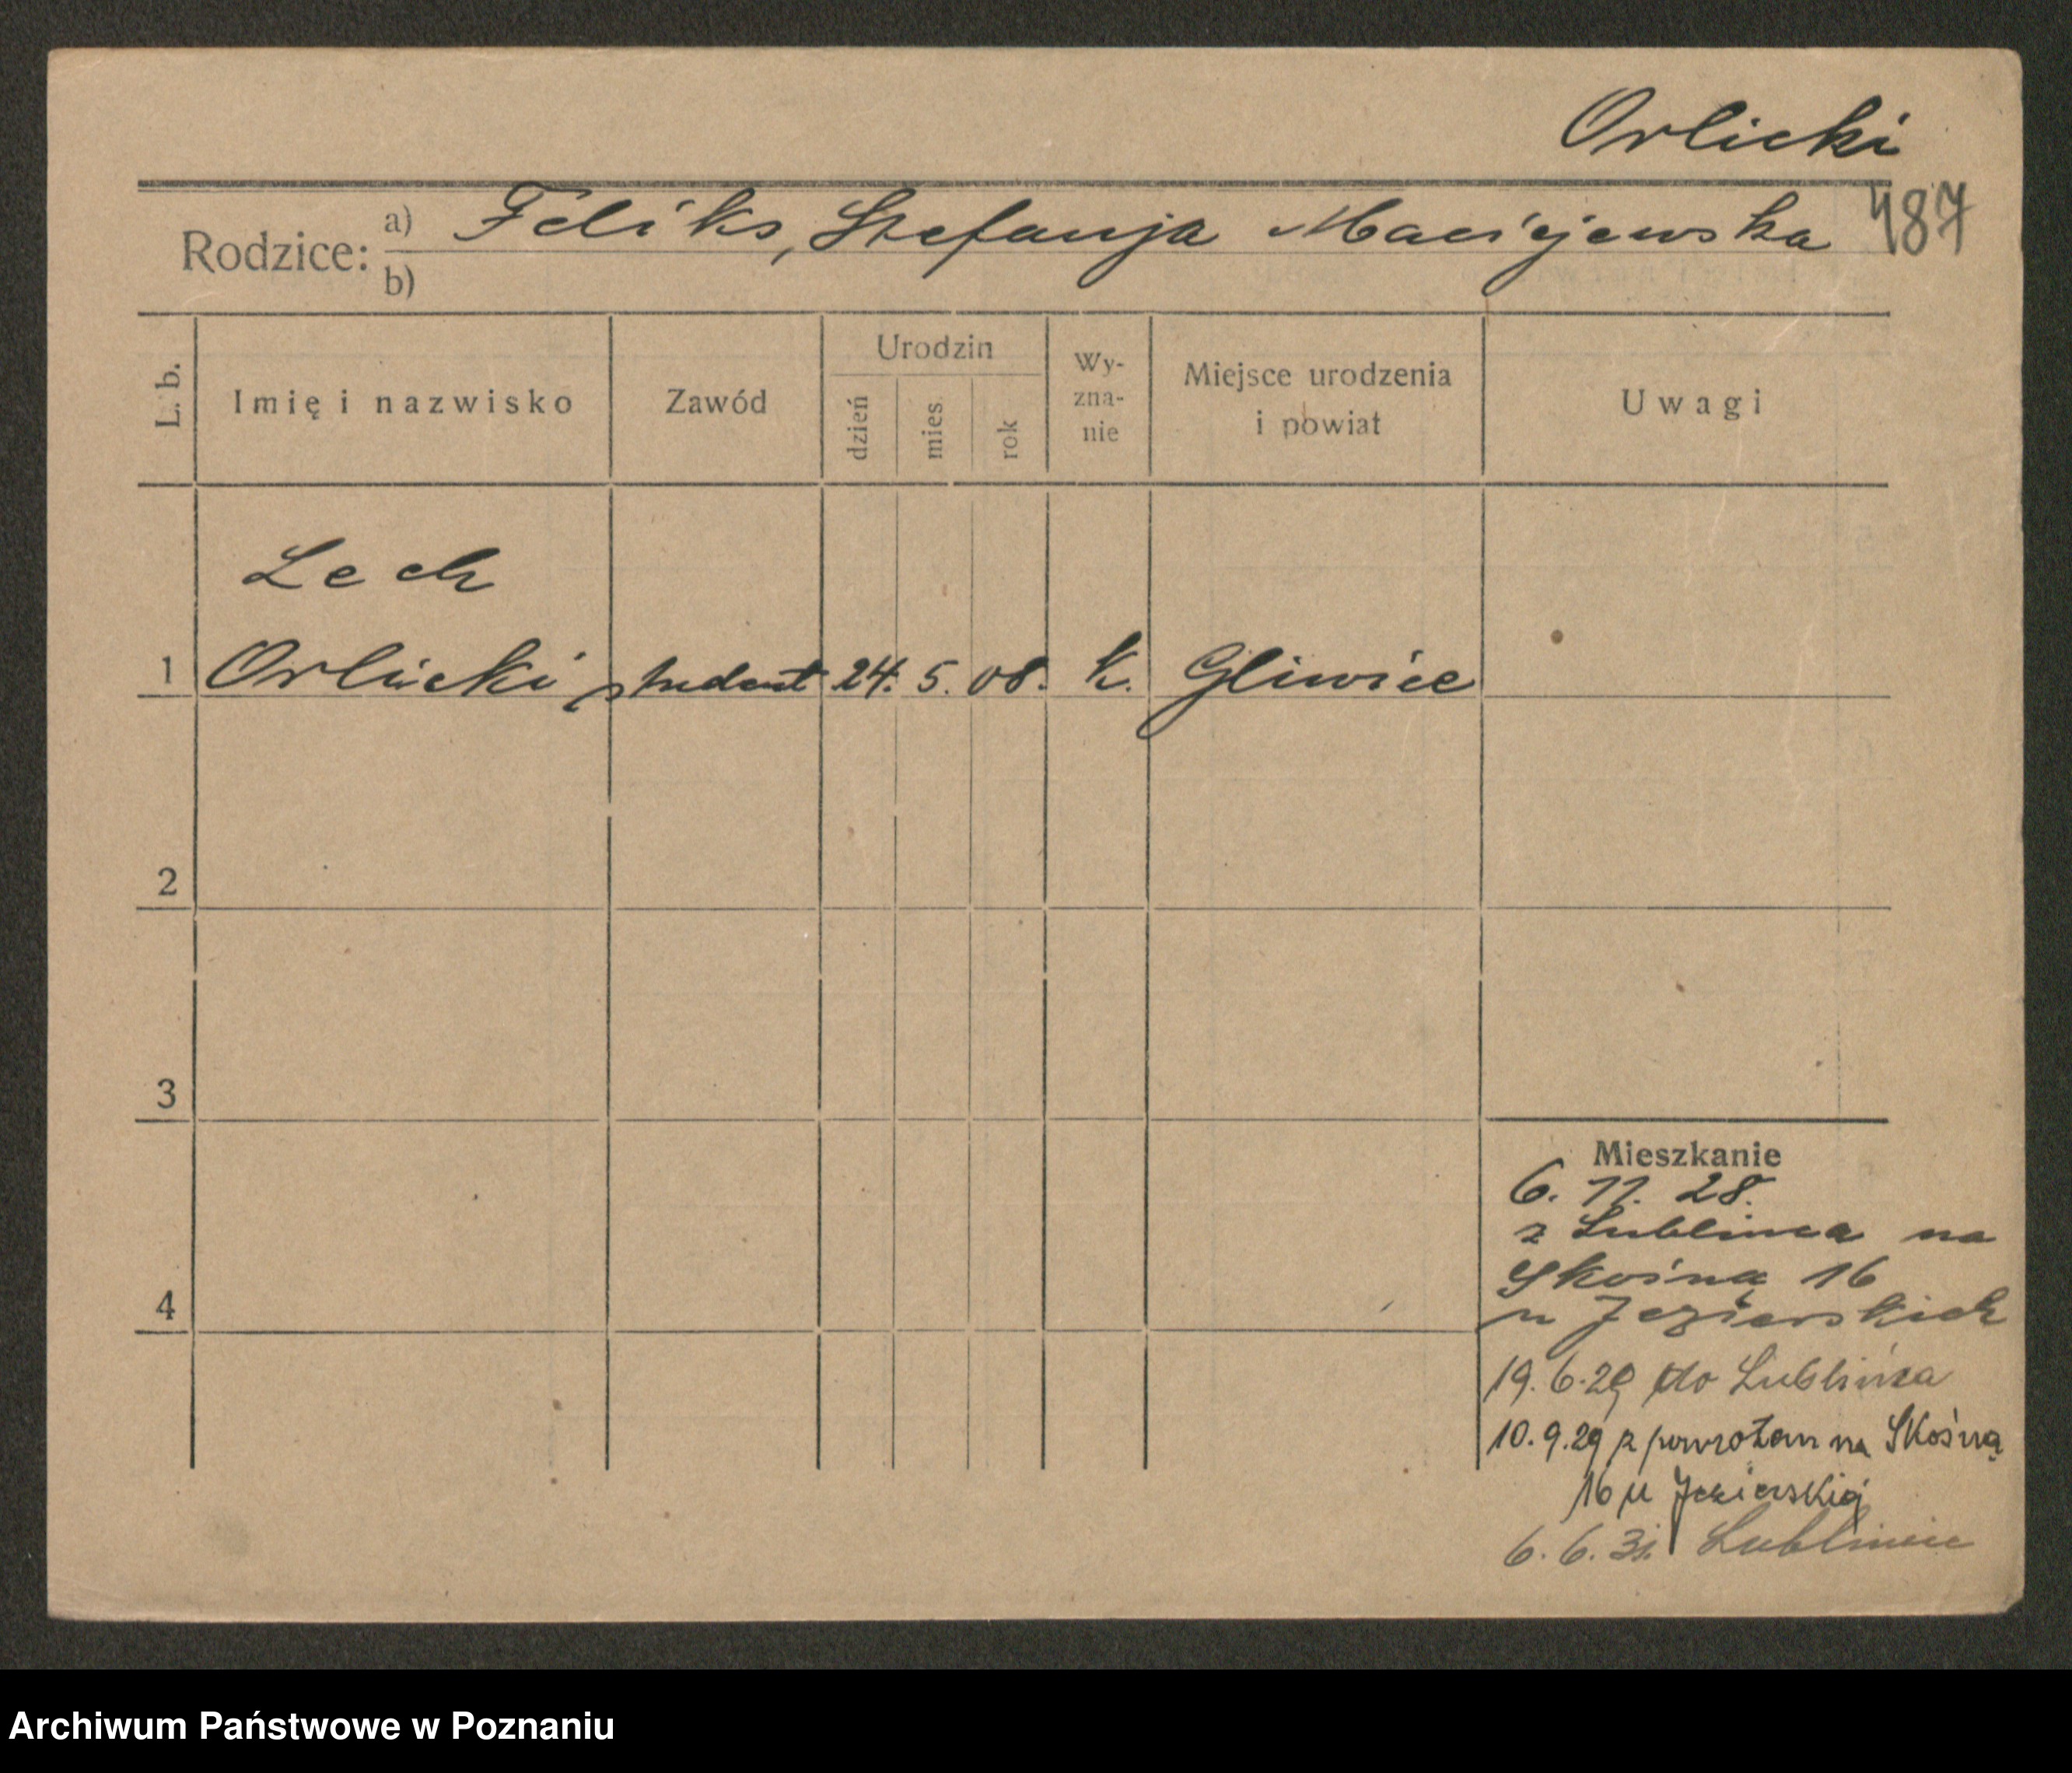 Orlicki
Rodzice: a) Feliks, Stefanja Maciejewska 487
b)
L. b. Imię i nazwisko Zawód Urodzin dzień mies. rok Wy-zna-nie Miejsce urodzenia i powiat Uwagi
Lech
1 Orlicki student 24. 5. 08. k. Gliwice
2
3
Mieszkanie
6. 11. 28.
z Lublinca na
Skośną 16
4
u Jezierskich
19.6.29 do Lublińca
10.9.29 z powrotem na Skośną
16 u Jezierskiej
6.6.31. Lubliniec
Archiwum Państwowe w Poznaniu